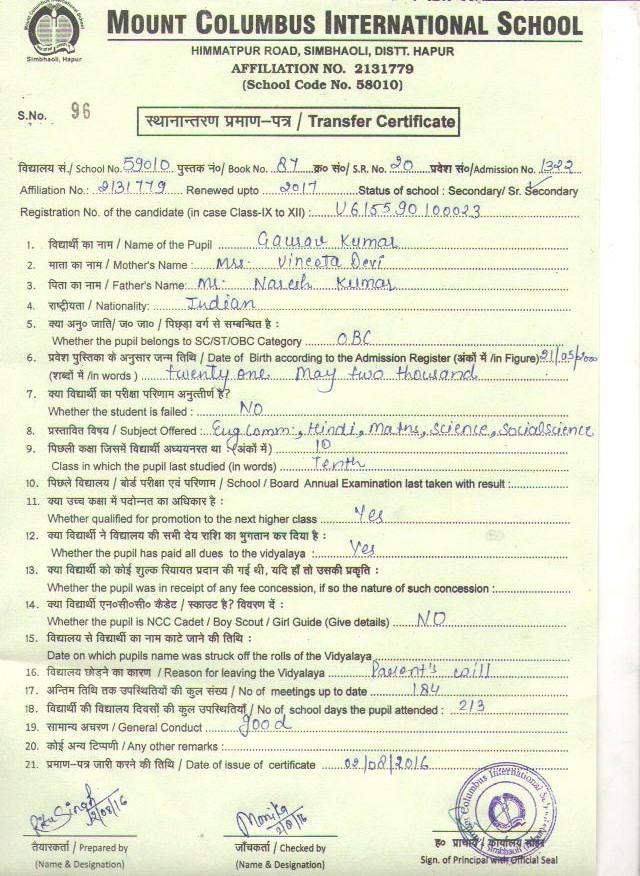 Mount Columbus International School
Simbhaoli, Hapur
MOUNT COLUMBUS INTERNATIONAL SCHOOL
HIMMATPUR ROAD, SIMBHAOLI, DISTT. HAPUR
AFFILIATION NO. 2131779
(School Code No. 58010)
S.No. 96
स्थानान्तरण प्रमाण-पत्र / Transfer Certificate
विद्यालय सं./ School No. 59010 पुस्तक नं०/ Book No. 87 क्र० सं०/ S.R. No. 20 प्रवेश सं०/Admission No. 1322
Affiliation No.: 2131779 Renewed upto 2017 Status of school : Secondary/ Sr. Secondary
Registration No. of the candidate (in case Class-IX to XII) : V615590100023
1. विद्यार्थी का नाम / Name of the Pupil Gaurav Kumar
2. माता का नाम / Mother's Name : Mrs. Vineeta Devi
3. पिता का नाम / Father's Name: Mr. Naresh Kumar
4. राष्ट्रीयता / Nationality: Indian
5. क्या अनु० जाति/ ज० जा० / पिछड़ा वर्ग से सम्बन्धित है :
Whether the pupil belongs to SC/ST/OBC Category OBC
6. प्रवेश पुस्तिका के अनुसार जन्म तिथि / Date of Birth according to the Admission Register (अंकों में /in Figure) 21/05/2000
(शब्दों में /in words ) twenty one May two thousand
7. क्या विद्यार्थी का परीक्षा परिणाम अनुत्तीर्ण है?
Whether the student is failed : NO
8. प्रस्तावित विषय / Subject Offered : Eng Comm:, Hindi, Maths, Science, Socialscience
9. पिछली कक्षा जिसमें विद्यार्थी अध्ययनरत था (अंकों में) 10
Class in which the pupil last studied (in words) Tenth
10. पिछले विद्यालय / बोर्ड परीक्षा एवं परिणाम / School / Board Annual Examination last taken with result :
11. क्या उच्च कक्षा में पदोन्नत का अधिकार है :
Whether qualified for promotion to the next higher class Yes
12. क्या विद्यार्थी ने विद्यालय की सभी देय राशि का भुगतान कर दिया है :
Whether the pupil has paid all dues to the vidyalaya : Yes
13. क्या विद्यार्थी को कोई शुल्क रियायत प्रदान की गई थी, यदि हाँ तो उसकी प्रकृति :
Whether the pupil was in receipt of any fee concession, if so the nature of such concession :
14. क्या विद्यार्थी एन०सी०सी० कैडेट / स्काउट है? विवरण दें :
Whether the pupil is NCC Cadet / Boy Scout / Girl Guide (Give details) NO
15. विद्यालय से विद्यार्थी का नाम काटे जाने की तिथि :
Date on which pupils name was struck off the rolls of the Vidyalaya
16. विद्यालय छोड़ने का कारण / Reason for leaving the Vidyalaya Parent's will
17. अन्तिम तिथि तक उपस्थितियों की कुल संख्य / No of meetings up to date 184
18. विद्यार्थी की विद्यालय दिवसों की कुल उपस्थितियाँ / No of school days the pupil attended : 213
19. सामान्य अचरण / General Conduct good
20. कोई अन्य टिप्पणी / Any other remarks :
21. प्रमाण-पत्र जारी करने की तिथि / Date of issue of certificate 02/08/2016
Ritu Singh 2/08/16
Monika 2/8/16
Columbus International School Simbhaoli
तैयारकर्ता / Prepared by जाँचकर्ता / Checked by ह० प्राचार्य कार्यालय मोहर
(Name & Designation) (Name & Designation) Sign. of Principal with Official Seal